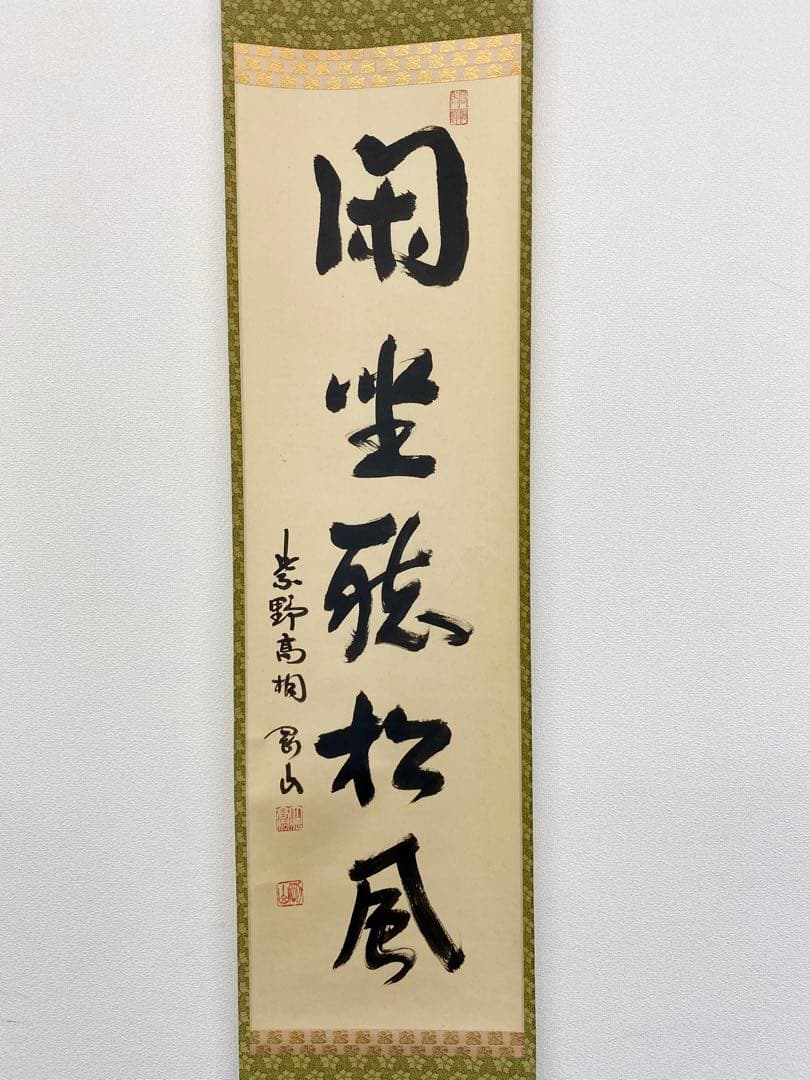 閑坐聴松風
紫野高桐 剛山